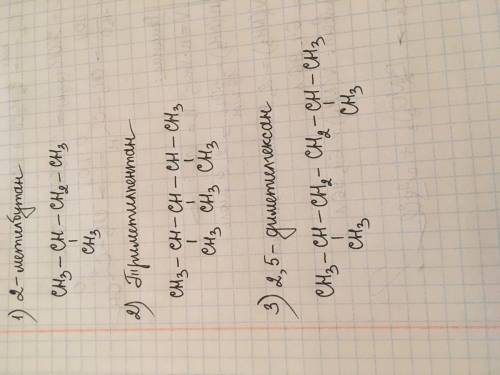 1) 2-метилбутан
CH3-CH-CH2-CH3
CH3
2) Триметилпентан
CH3-CH-CH-CH-CH3
CH3 CH3 CH3
3) 2,5-диметилгексан
CH3-CH-CH2-CH2-CH-CH3
CH3 CH3